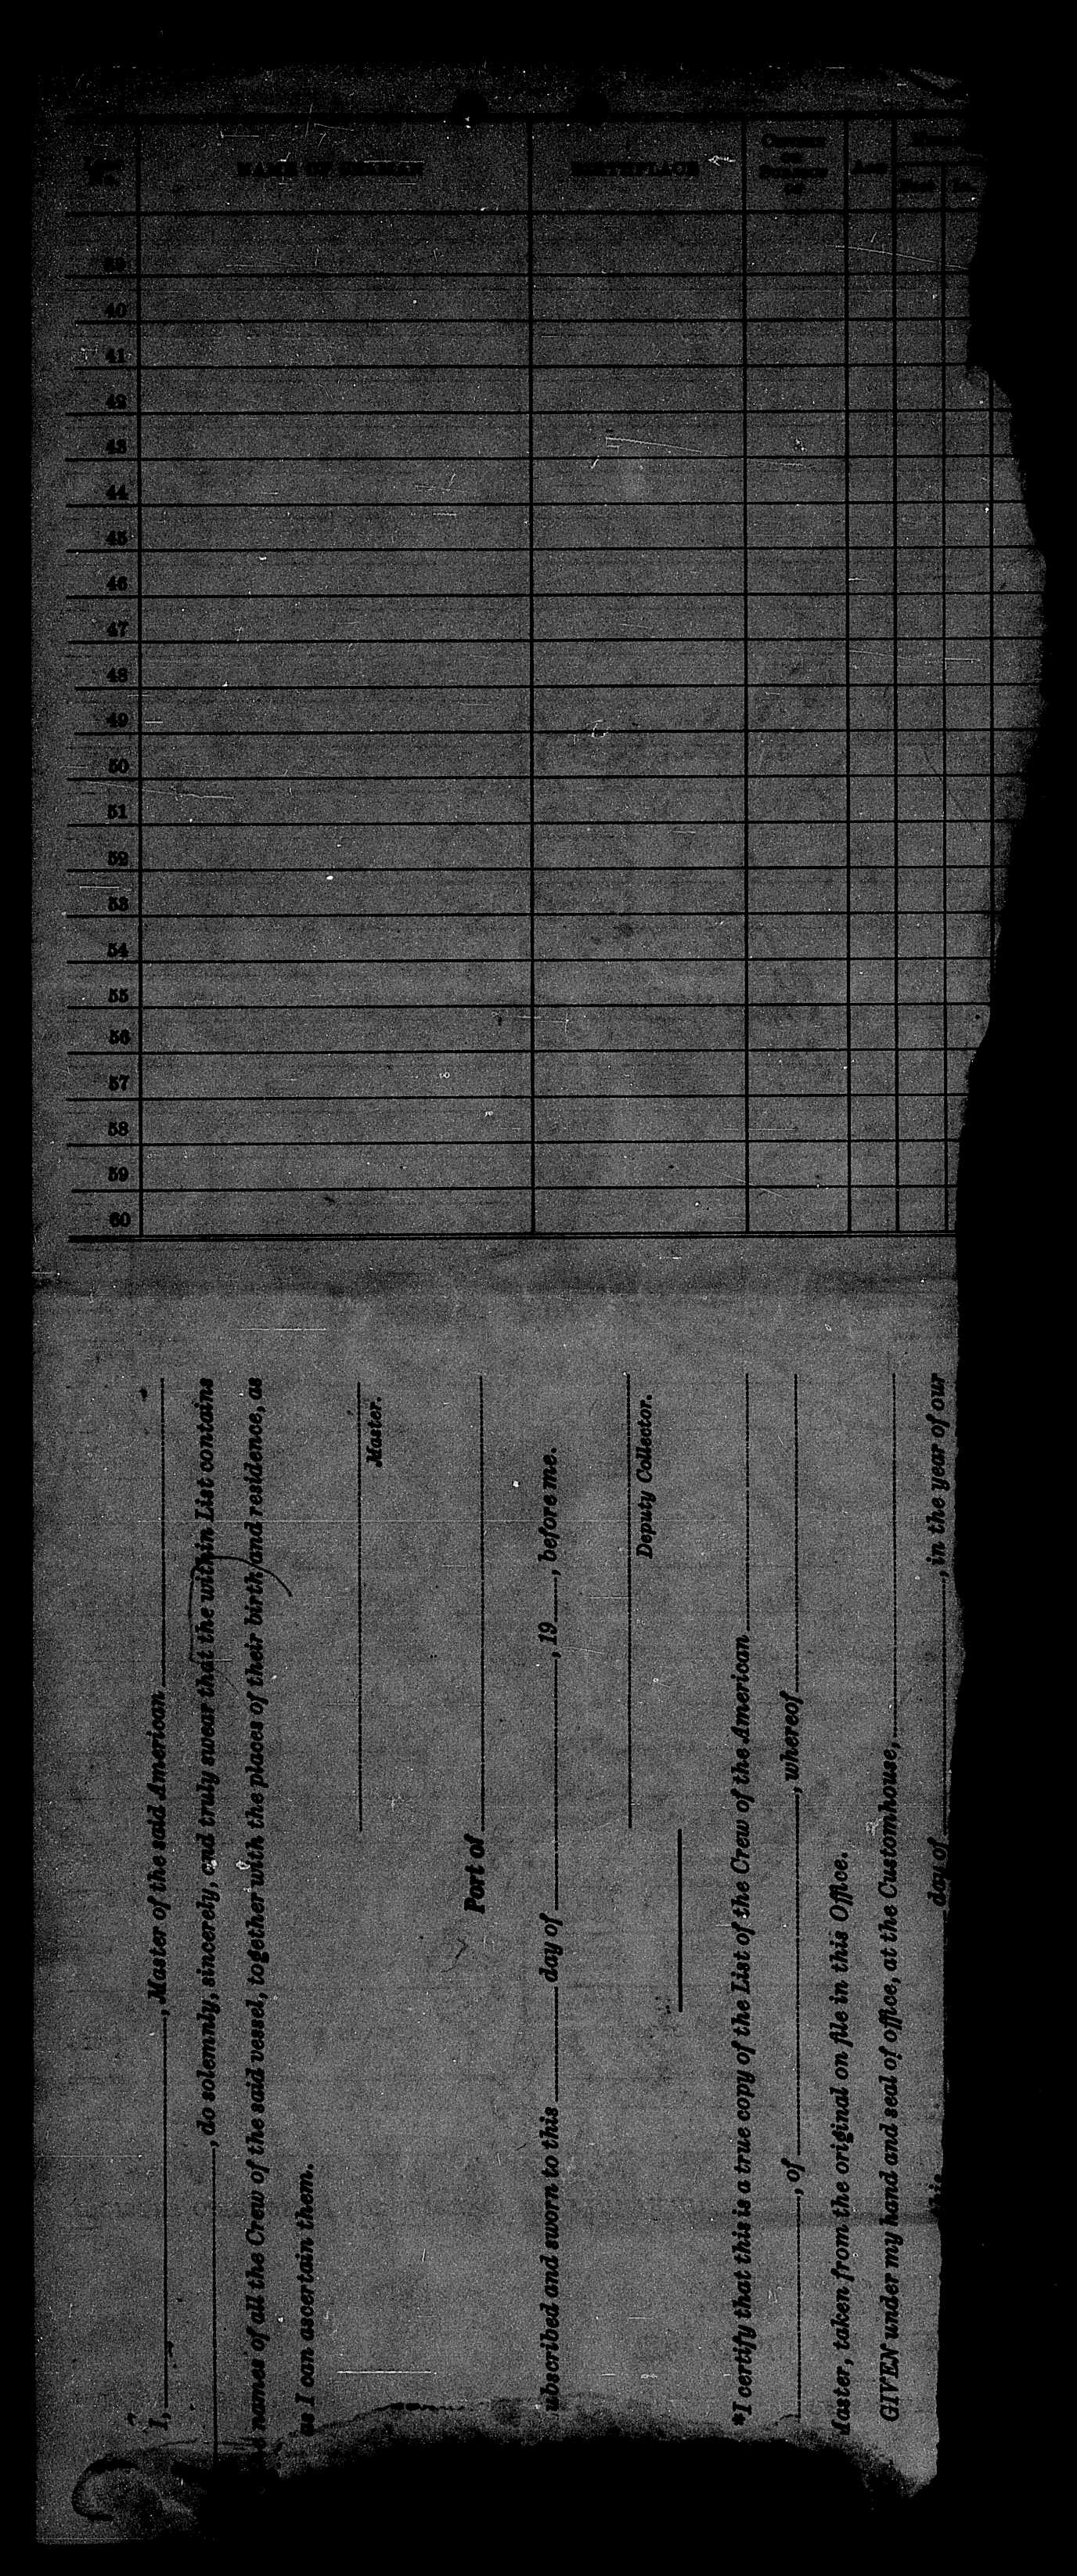 NAME OF SEAMAN BIRTHPLACE
39
40
41
42
43
44
45
46
47
48
49
50
51
52
53
54
55
56
57
58
59
60
I, , Master of the said American
, do solemnly, sincerely, and truly swear that the within List contains
names of all the Crew of the said vessel, together with the places of their birth and residence, as
as I can ascertain them.
Master.
Port of
ubscribed and sworn to this day of , 19 , before me.
Deputy Collector.
*I certify that this is a true copy of the List of the Crew of the American
, of , whereof
Master, taken from the original on file in this Office.
GIVEN under my hand and seal of office, at the Customhouse,
this day of , in the year of our